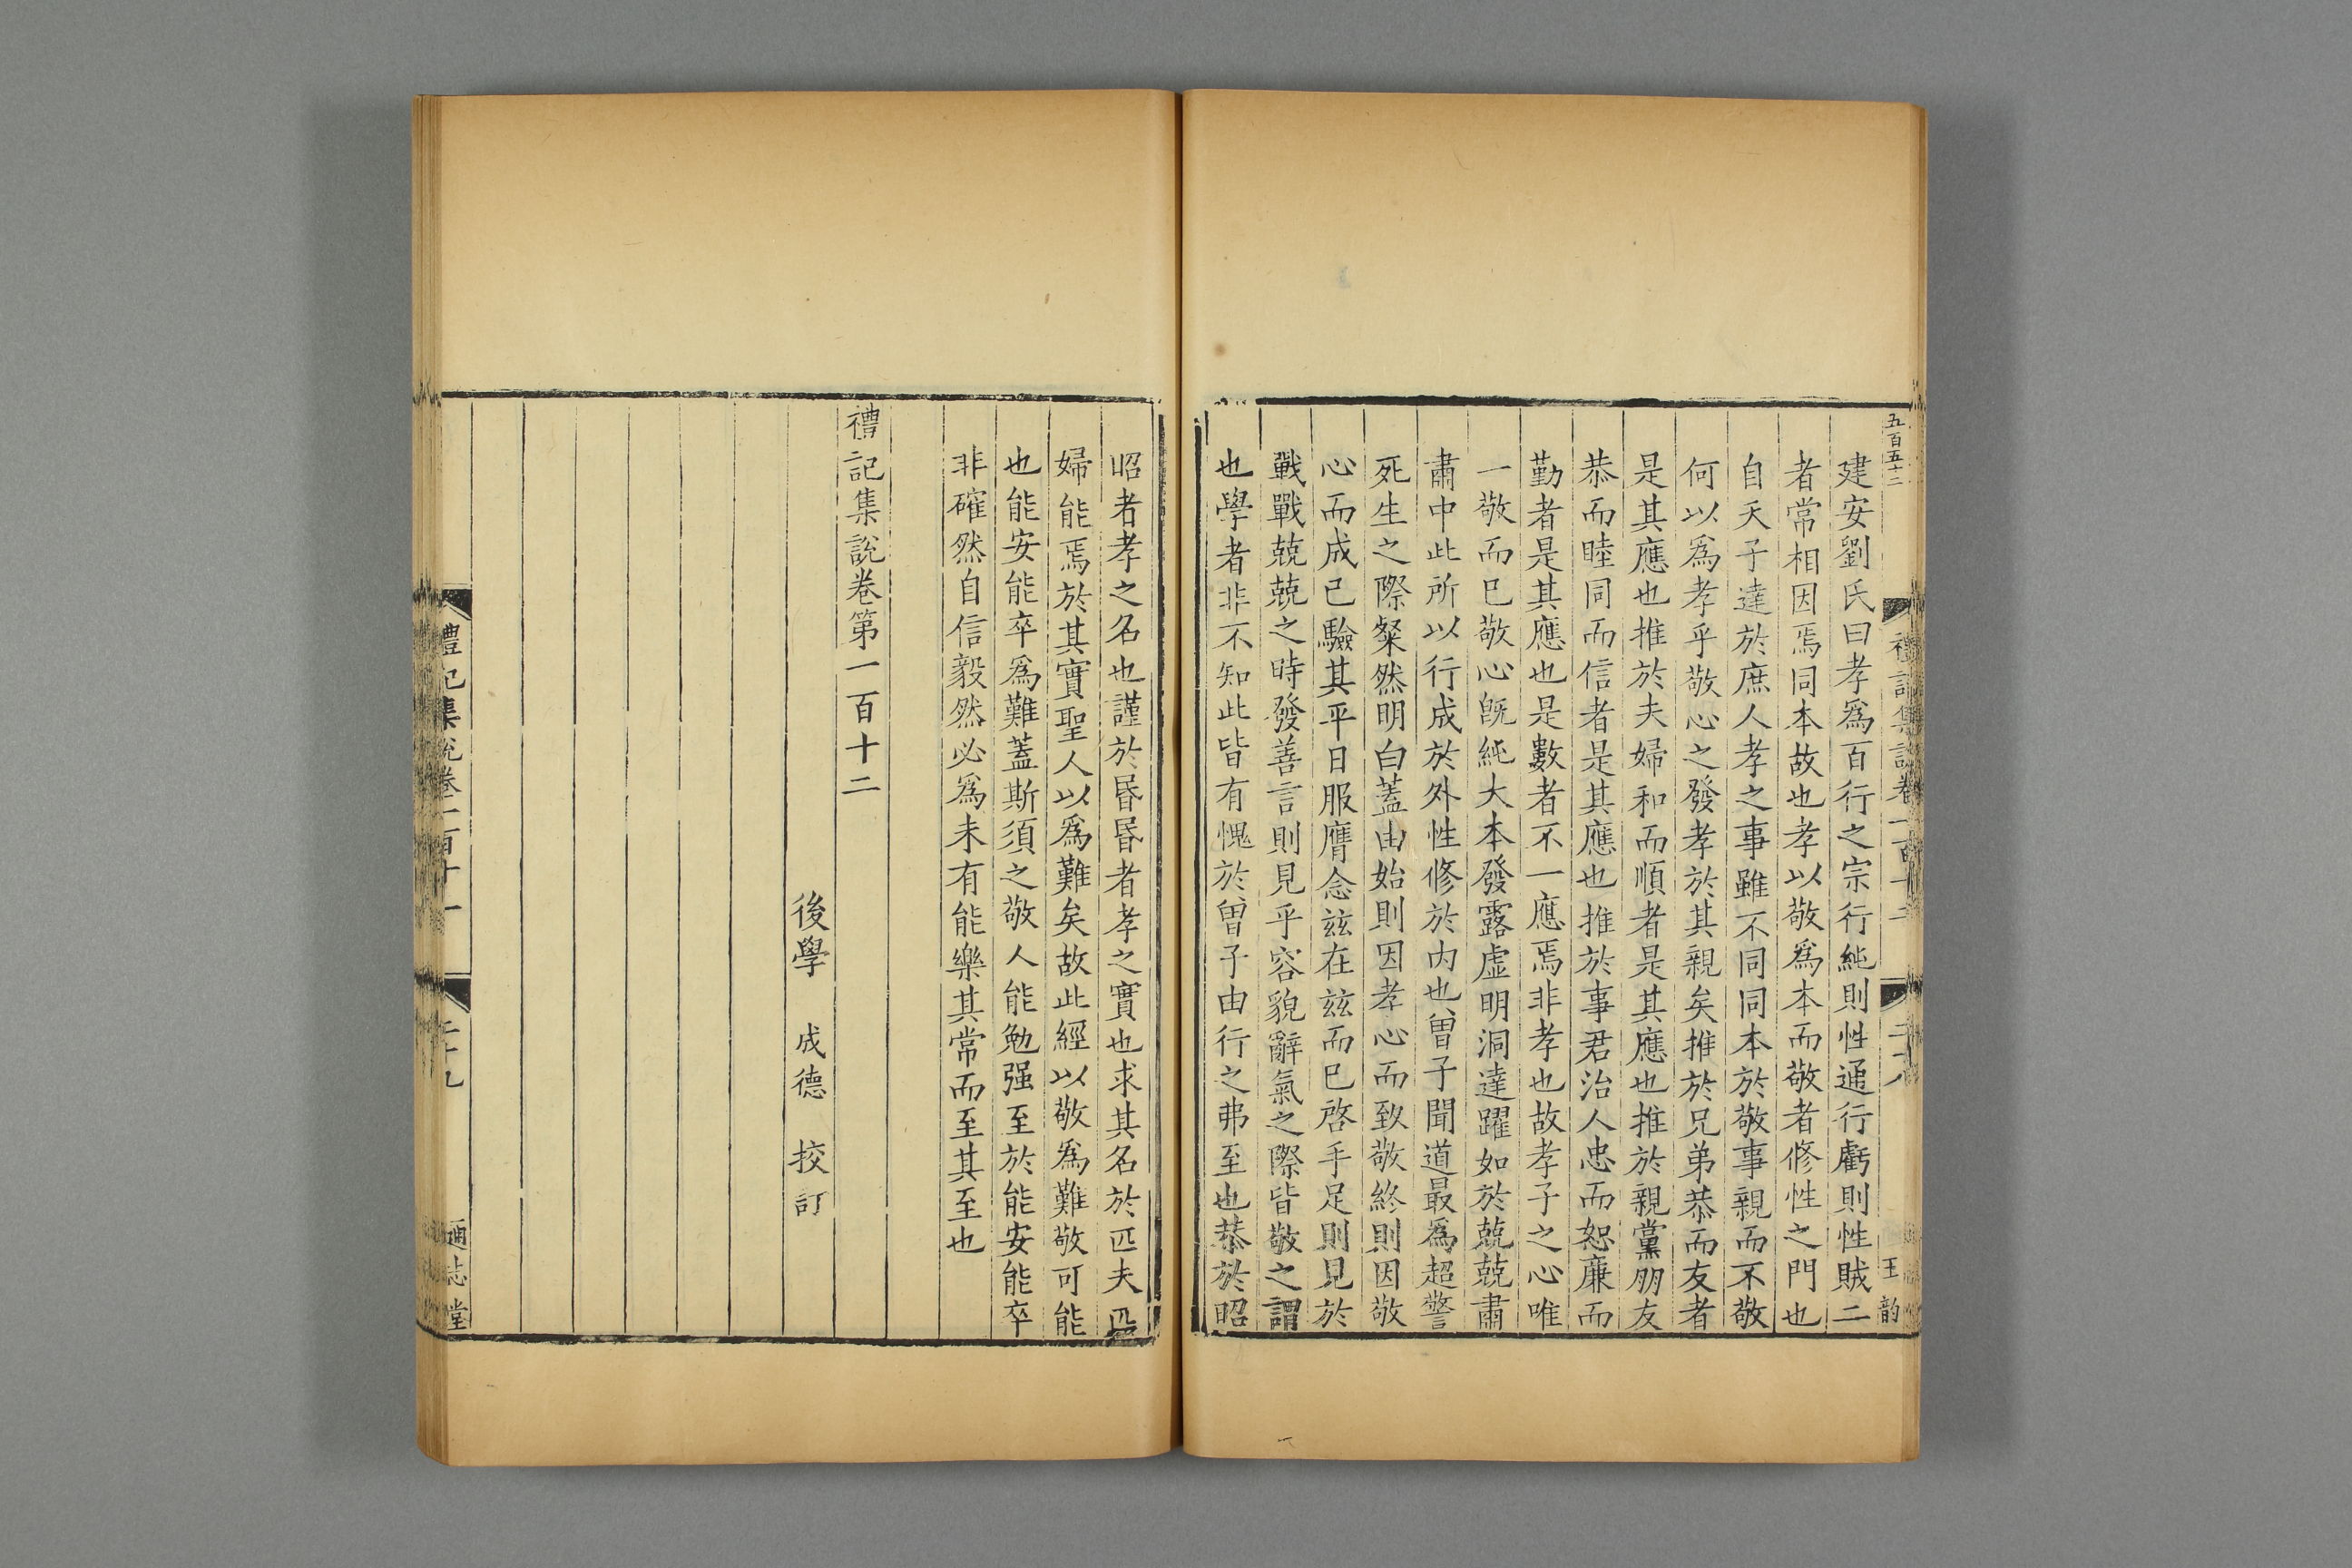 五百五十二
禮記集說卷一百十二
二十八
王
韵
建安劉氏曰孝爲百行之宗行純則性通行虧則性賊二
者常相因焉同本故也孝以敬爲本而敬者修性之門也
自天子達於庶人孝之事雖不同同本於敬事親而不敬
何以爲孝乎敬心之發孝於其親矣推於兄弟恭而友者
是其應也推於夫婦和而順者是其應也推於親黨朋友
恭而睦同而信者是其應也推於事君治人忠而恕廉而
勤者是其應也是數者不一應焉非孝也故孝子之心唯
一敬而巳敬心旣純大本發露虛明洞達躍如於兢兢肅
肅中此所以行成於外性修於内也曽子聞道最爲超警
死生之際粲然明白蓋由始則因孝心而致敬終則因敬
心而成已驗其平日服膺念兹在兹而巳啓手足則見於
戰戰兢兢之時發善言則見乎容貌辭氣之際皆敬之謂
也學者非不知此皆有愧於曽子由行之弗至也恭於昭
昭者孝之名也謹於昬昬者孝之實也求其名於匹夫匹
婦能焉於其實聖人以爲難矣故此經以敬爲難敬可能
也能安能卒爲難蓋斯須之敬人能勉强至於能安能卒
非確然自信毅然必爲未有能樂其常而至其至也
禮記集說卷第一百十二
後學　成德　挍訂
禮記集說卷一百十一
二十九
通志堂